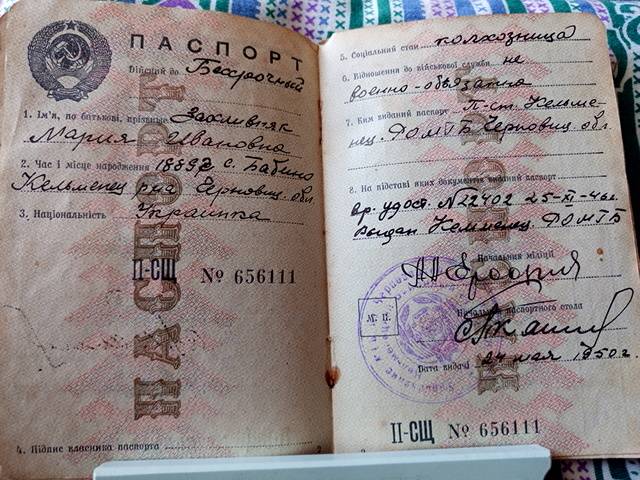 ПАСПОРТ
Дійсний до Бессрочный
1. Ім'я, по батькові, прізвище Захливняк
Мария Ивановна
2. Час і місце народження 1889г с. Бабино
Кельменец р-на Черновиц. обл
3. Національність Украинка
ПАСПОРТ
II-СЩ № 656111
4. Підпис власника паспорта
5. Соціальний стан колхозница
6. Відношення до військової служби не
военно-обязатна
7. Ким виданий паспорт П-ст. Кельме-
нец. РОМГБ Черновиц обл
8. На підставі яких документів виданий паспорт
вр. удост. N22402 25-XI-
выдан Кельменец. РОМГБ
Начальник міліції
М. П.
Начальник паспортного стола
Дата видачі 24 мая 1950г.
II-СЩ № 656111